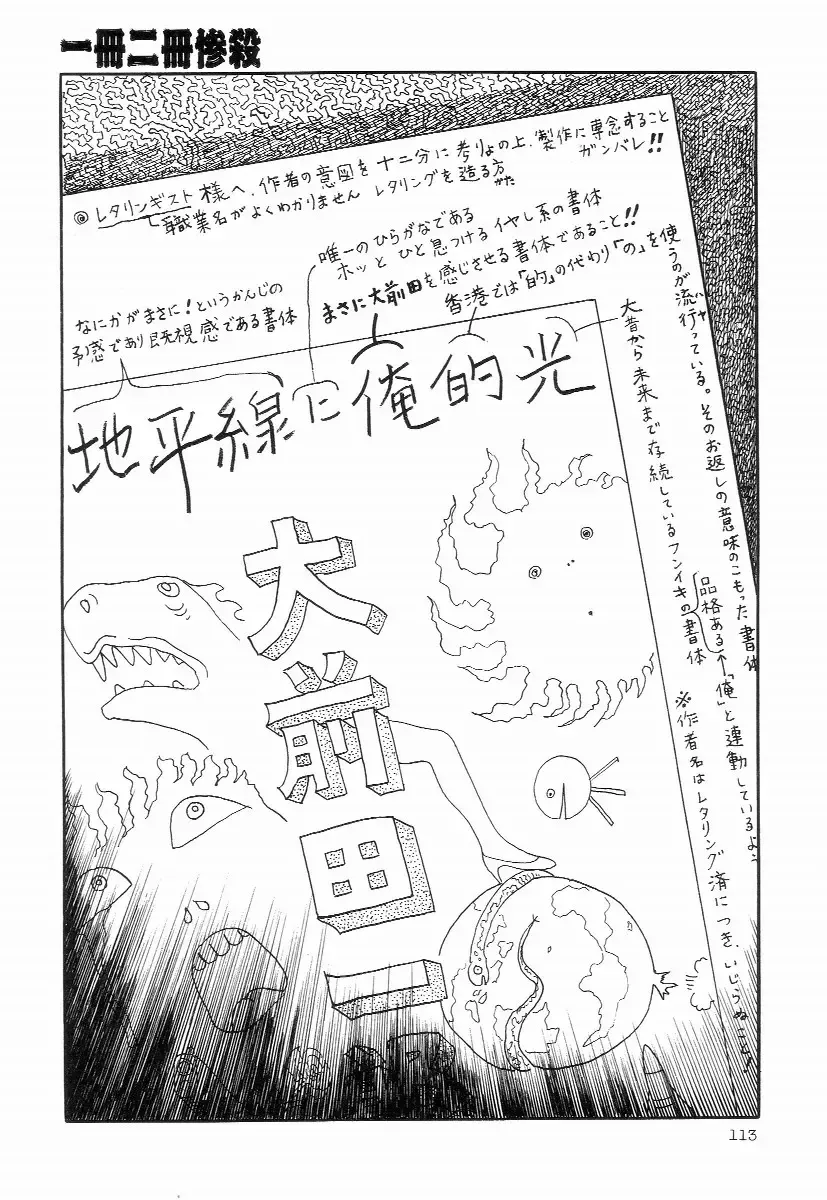 一冊二冊惨殺
◎レタリンギスト様へ、作者の意図を十二分に考りょの上、製作に専念すること
ガンバレ!!
職業名がよくわかりません レタリングを造る方
かた
唯一のひらがなである
ホッと ひと息つけるイヤし系の書体
なにかがまさに!というかんじの
予感であり既視感である書体
まさに大前田を感じさせる書体であること!!
香港では「的」の代わり「の」を使うのが流行っている。そのお返しの意味のこもった書体
ハヤ
大昔から未来まで存続しているフンイキの書体
品格ある←「俺」と連動しているよ
※作者名はレタリング済につき、いじらぬこと
地平線に俺的光
大前田一
113